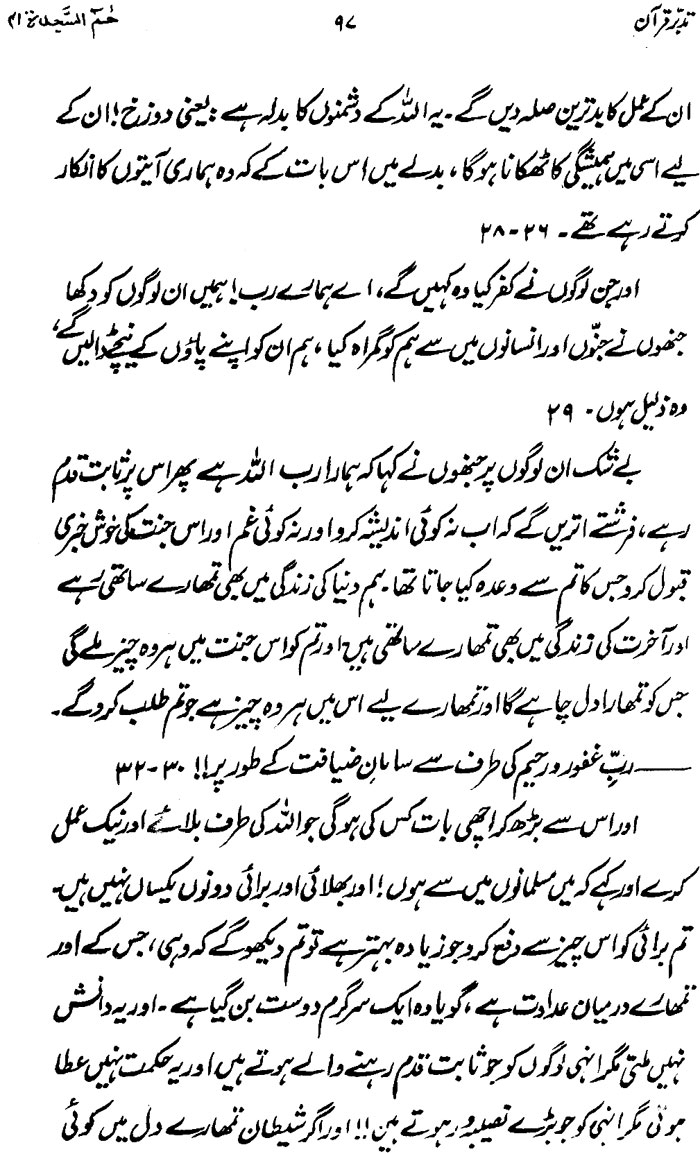 تدبّر قرآن ۹۷ حٰمٓ السّجدۃ ۴۱
ان کے عمل کا بدترین صلہ دیں گے۔ یہ اللہ کے دشمنوں کا بدلہ ہے: یعنی دوزخ! ان کے
لیے اسی میں ہمیشگی کا ٹھکانا ہوگا، بدلے میں اس بات کے کہ وہ ہماری آیتوں کا انکار
کرتے رہے تھے۔ ۲۶-۲۸
اور جن لوگوں نے کفر کیا وہ کہیں گے، اے ہمارے رب! ہمیں ان لوگوں کو دکھا
جنھوں نے جنّوں اور انسانوں میں سے ہم کو گمراہ کیا، ہم ان کو اپنے پاؤں کے نیچے ڈالیں گے،
وہ ذلیل ہوں۔ ۲۹
بے شک ان لوگوں پر جنھوں نے کہا کہ ہمارا رب اللہ ہے پھر اس پر ثابت قدم
رہے، فرشتے اتریں گے کہ اب نہ کوئی اندیشہ کرو اور نہ کوئی غم اور اس جنت کی خوش خبری
قبول کرو جس کا تم سے وعدہ کیا جاتا تھا۔ ہم دنیا کی زندگی میں بھی تمھارے ساتھی رہے
اور آخرت کی زندگی میں بھی تمھارے ساتھی ہیں۔ اور تم کو اس جنت میں ہر وہ چیز ملے گی
جس کو تمھارا دل چاہے گا اور تمھارے لیے اس میں ہر وہ چیز ہے جو تم طلب کرو گے۔
——— ربِّ غفور و رحیم کی طرف سے سامانِ ضیافت کے طور پر!! ۳۰-۳۲
اور اس سے بڑھ کر اچھی بات کس کی ہوگی جو اللہ کی طرف بلائے اور نیک عمل
کرے اور کہے کہ میں مسلمانوں میں سے ہوں! اور بھلائی اور برائی دونوں یکساں نہیں ہیں۔
تم برائی کو اس چیز سے دفع کرو جو زیادہ بہتر ہے تو تم دیکھو گے کہ وہی، جس کے اور
تمھارے درمیان عداوت ہے، گویا وہ ایک سرگرم دوست بن گیا ہے۔ اور یہ دانش
نہیں ملتی مگر انہی لوگوں کو جو ثابت قدم رہنے والے ہوتے ہیں اور یہ حکمت نہیں عطا
ہوتی مگر انہی کو جو بڑے نصیبہ ور ہوتے ہیں!! اور اگر شیطان تمھارے دل میں کوئی